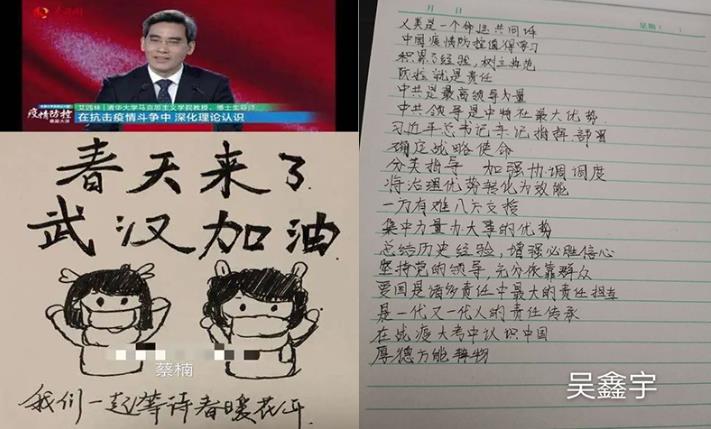 人民网
疫情防控
艾四林|清华大学马克思主义学院教授、博士生导师
在抗击疫情斗争中 深化理论认识
春天来了
武汉加油
蔡楠
我们一起等待春暖花开
月 日
星期( )
人类是一个命运共同体
中国疫情防控值得学习
积累了经验,树立典范
防控就是责任
中共是最高领导力量
中共领导是中特社最大优势
习近平总书记亲自指挥.部署
确定战略使命
分类指导 加强协调调度
将治理优势转化为效能
一方有难八方支援
集中力量办大事的优势
总结历史经验,增强必胜信心
坚持党的领导,充分依靠群众
爱国是诸多责任中最大的责任担当
是一代又一代人的责任传承
在战疫大考中认识中国
厚德方能载物
吴鑫宇